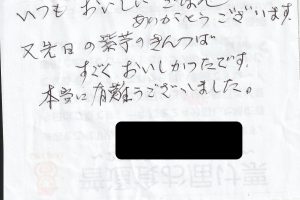 いつも おいしい ごはん
ありがとうございます.
又先日の紫芋のきんつば
すごく おいしかったです.
本当に有難うございました。